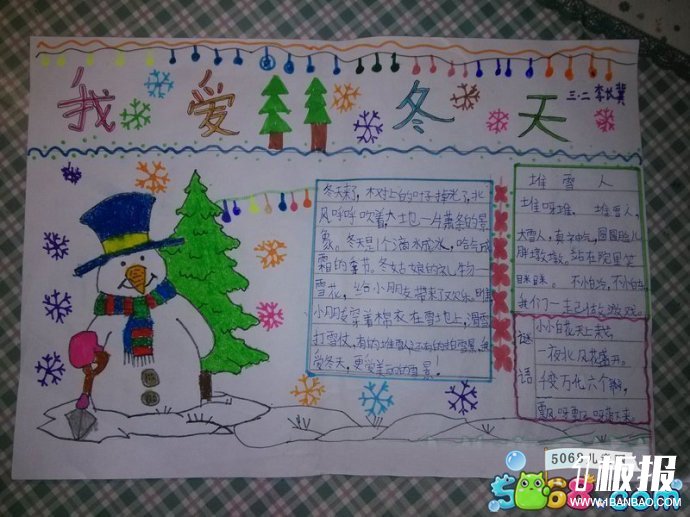 我爱冬天
三.二 李
冬天来了,木对上的叶子掉光了,北
风呼呼吹着,大地一片萧条的景
象。冬天是个滴水成冰,哈气成
霜的季节。冬姑娘的礼物一
雪花,给小朋友带来了欢乐。
小朋友穿着棉衣在雪地上,滑雪
打雪仗,有的堆雪人还有的拍雪景,我
爱冬天,更爱美丽的雪景!
堆雪人
堆呀堆,堆雪人,
大雪人,真神气,圆圆脸儿
胖墩墩,站在院里笑
眯眯。不怕,不怕
我们一起做游戏。
谜语
小小白花天上栽,
一夜北风花盛开。
千变万化六个瓣,
飘呀飘呀落下来。
5068儿
板报
5068.com
WWW.1BANBAO.COM